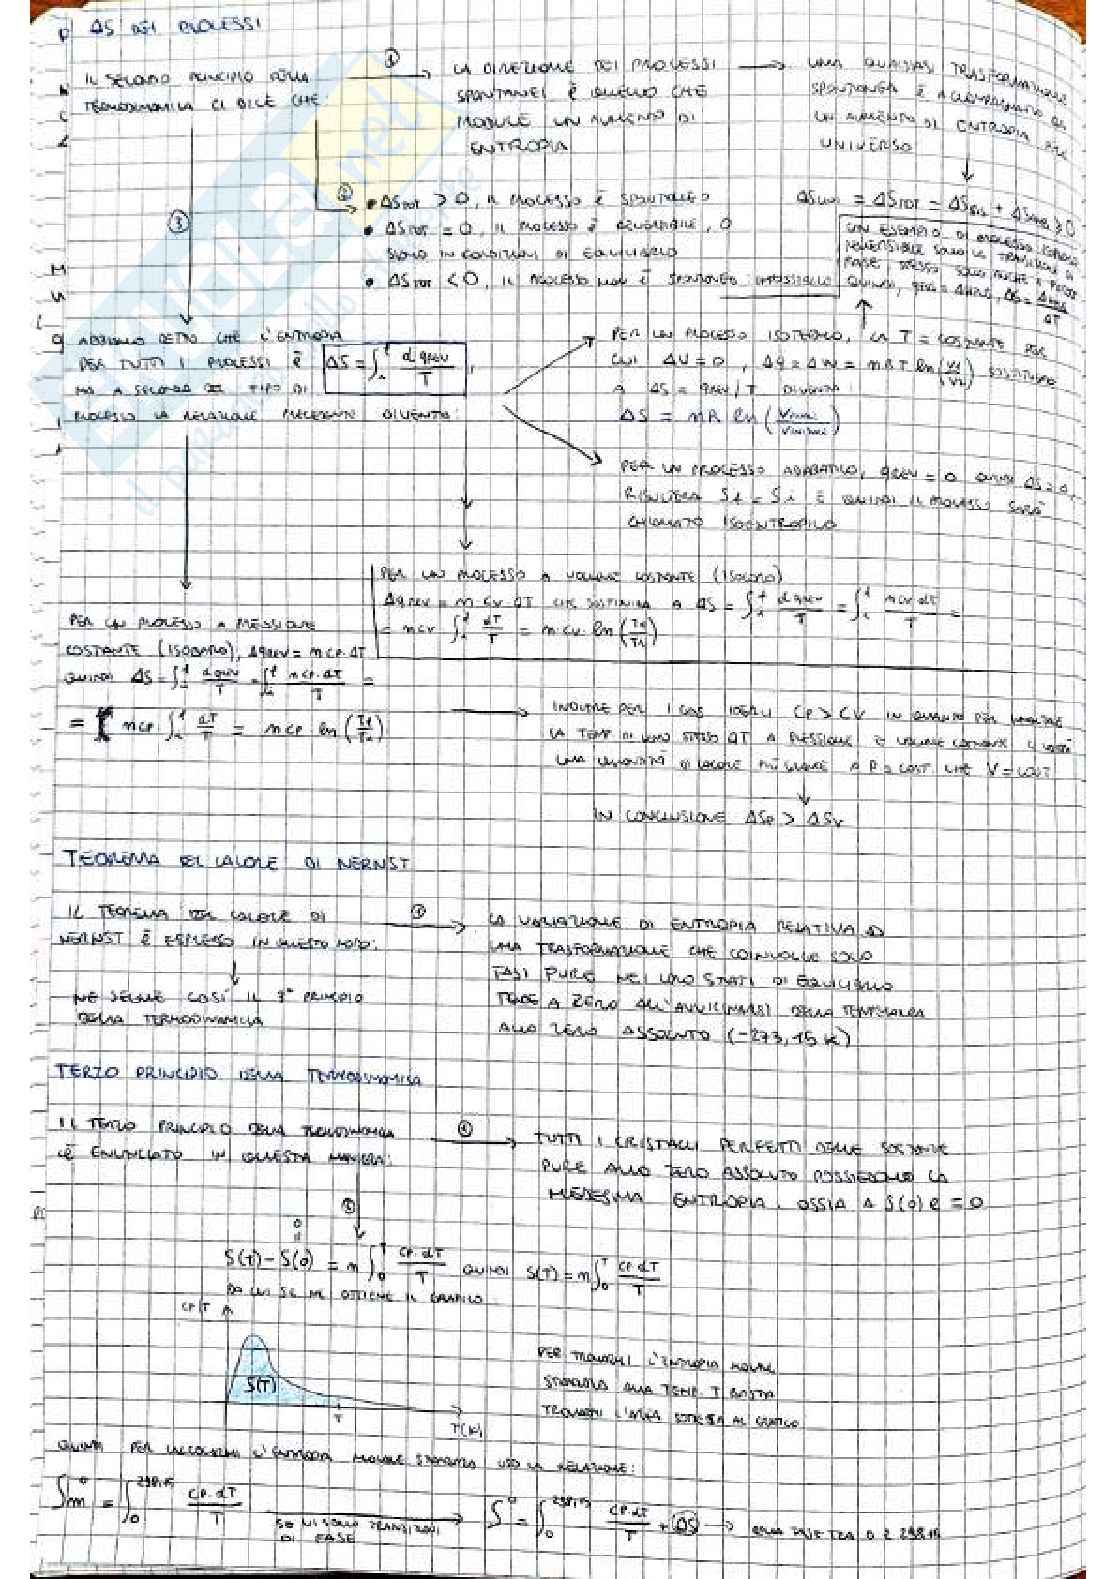 ΔS DEI PROCESSI
IL SECONDO PRINCIPIO DELLA
TERMODINAMICA CI DICE CHE:
①
LA DIREZIONE DEI PROCESSI
SPONTANEI È QUELLO CHE
PRODUCE UN AUMENTO DI
ENTROPIA
UNA QUALSIASI TRASFORMAZIONE
SPONTANEA È ACCOMPAGNATO DA
UN AUMENTO DI ENTROPIA
UNIVERSO
②
• ΔS TOT > 0, IL PROCESSO È SPONTANEO
• ΔS TOT = 0, IL PROCESSO È REVERSIBILE, O
SIAMO IN CONDIZIONI DI EQUILIBRIO
• ΔS TOT < 0, IL PROCESSO NON È SPONTANEO IMPOSSIBILE
= ΔS TOT = ΔS SIS + ≥ 0
UN ESEMPIO DI PROCESSO
REVERSIBILE SONO LE TRANSIZIONI DI
FASE
③
ABBIAMO DETTO CHE L'ENTROPIA
PER TUTTI I PROCESSI È ΔS = ∫ d qrev / T ,
MA A SECONDA DEL TIPO DI
PROCESSO LA RELAZIONE PRECEDENTE DIVENTA:
PER UN PROCESSO ISOTERMO, LA T = COSTANTE PER
CUI ΔU = 0, Δq = ΔW = nRT ln
A ΔS = qrev/T DIVENTA:
ΔS = nR ln (V finale / V iniziale)
PER UN PROCESSO ADIABATICO, qrev = 0 QUINDI ΔS = 0,
RISULTERÀ Sf = Si E QUINDI IL PROCESSO SARÀ
CHIAMATO ISOENTROPICO
PER UN PROCESSO A VOLUME COSTANTE (ISOCORO)
Δqrev = n CV ΔT CHE SOSTITUITA A ΔS = ∫ d qrev / T = ∫ n CV dT / T =
= n CV ∫ dT / T = n · CV · ln (Tf / Ti)
PER UN PROCESSO A PRESSIONE
COSTANTE (ISOBARO), Δqrev = n CP · ΔT
QUINDI ΔS = ∫ d qrev / T = ∫ n CP · dT / T =
= n CP · ∫ dT / T = n CP · ln (Tf / Ti)
INOLTRE PER I GAS IDEALI CP > CV IN QUANTO PER
LA TEMP DI UNO STESSO ΔT A PRESSIONE E VOLUME COSTANTE
UNA QUANTITÀ DI CALORE PIÙ GRANDE A P = COST. CHE V = COST
IN CONCLUSIONE ΔSP > ΔSV
TEOREMA DEL CALORE DI NERNST
IL TEOREMA DEL CALORE DI
NERNST È ESPRESSO IN QUESTO MODO:
①
LA VARIAZIONE DI ENTROPIA RELATIVA AD
UNA TRASFORMAZIONE CHE COINVOLGE SOLO
FASI PURE NEI LORO STATI DI EQUILIBRIO
TENDE A ZERO ALL'AVVICINARSI DELLA TEMPERATURA
ALLO ZERO ASSOLUTO (-273,15 K)
NE SEGUE COSÌ IL 3° PRINCIPIO
DELLA TERMODINAMICA
TERZO PRINCIPIO DELLA TERMODINAMICA
IL TERZO PRINCIPIO DELLA TERMODINAMICA
È ENUNCIATO IN QUESTA MANIERA:
①
TUTTI I CRISTALLI PERFETTI DELLE SOSTANZE
PURE ALLO ZERO ASSOLUTO POSSIEDONO LA
MEDESIMA ENTROPIA, OSSIA A S(0) È = 0
②
S(T) - S(0) = n ∫₀ᵀ CP · dT / T QUINDI S(T) = n ∫₀ᵀ CP · dT / T
DA CUI SE NE OTTIENE IL GRAFICO
CP/T
S(T)
T
T(K)
PER TROVARMI L'ENTROPIA MOLARE
STANDARD ALLA TEMP. T BASTA
TROVARMI L'AREA SOTTESA AL GRAFICO
QUINDI PER CALCOLARMI L'ENTROPIA MOLARE STANDARD USO LA RELAZIONE:
Sm° = ∫₀^298,15 CP · dT / T
SE VI SONO TRANSIZIONI
DI FASE
S° = ∫₀^298,15 CP · dT / T + ΔS → TRA 0 E 298,15